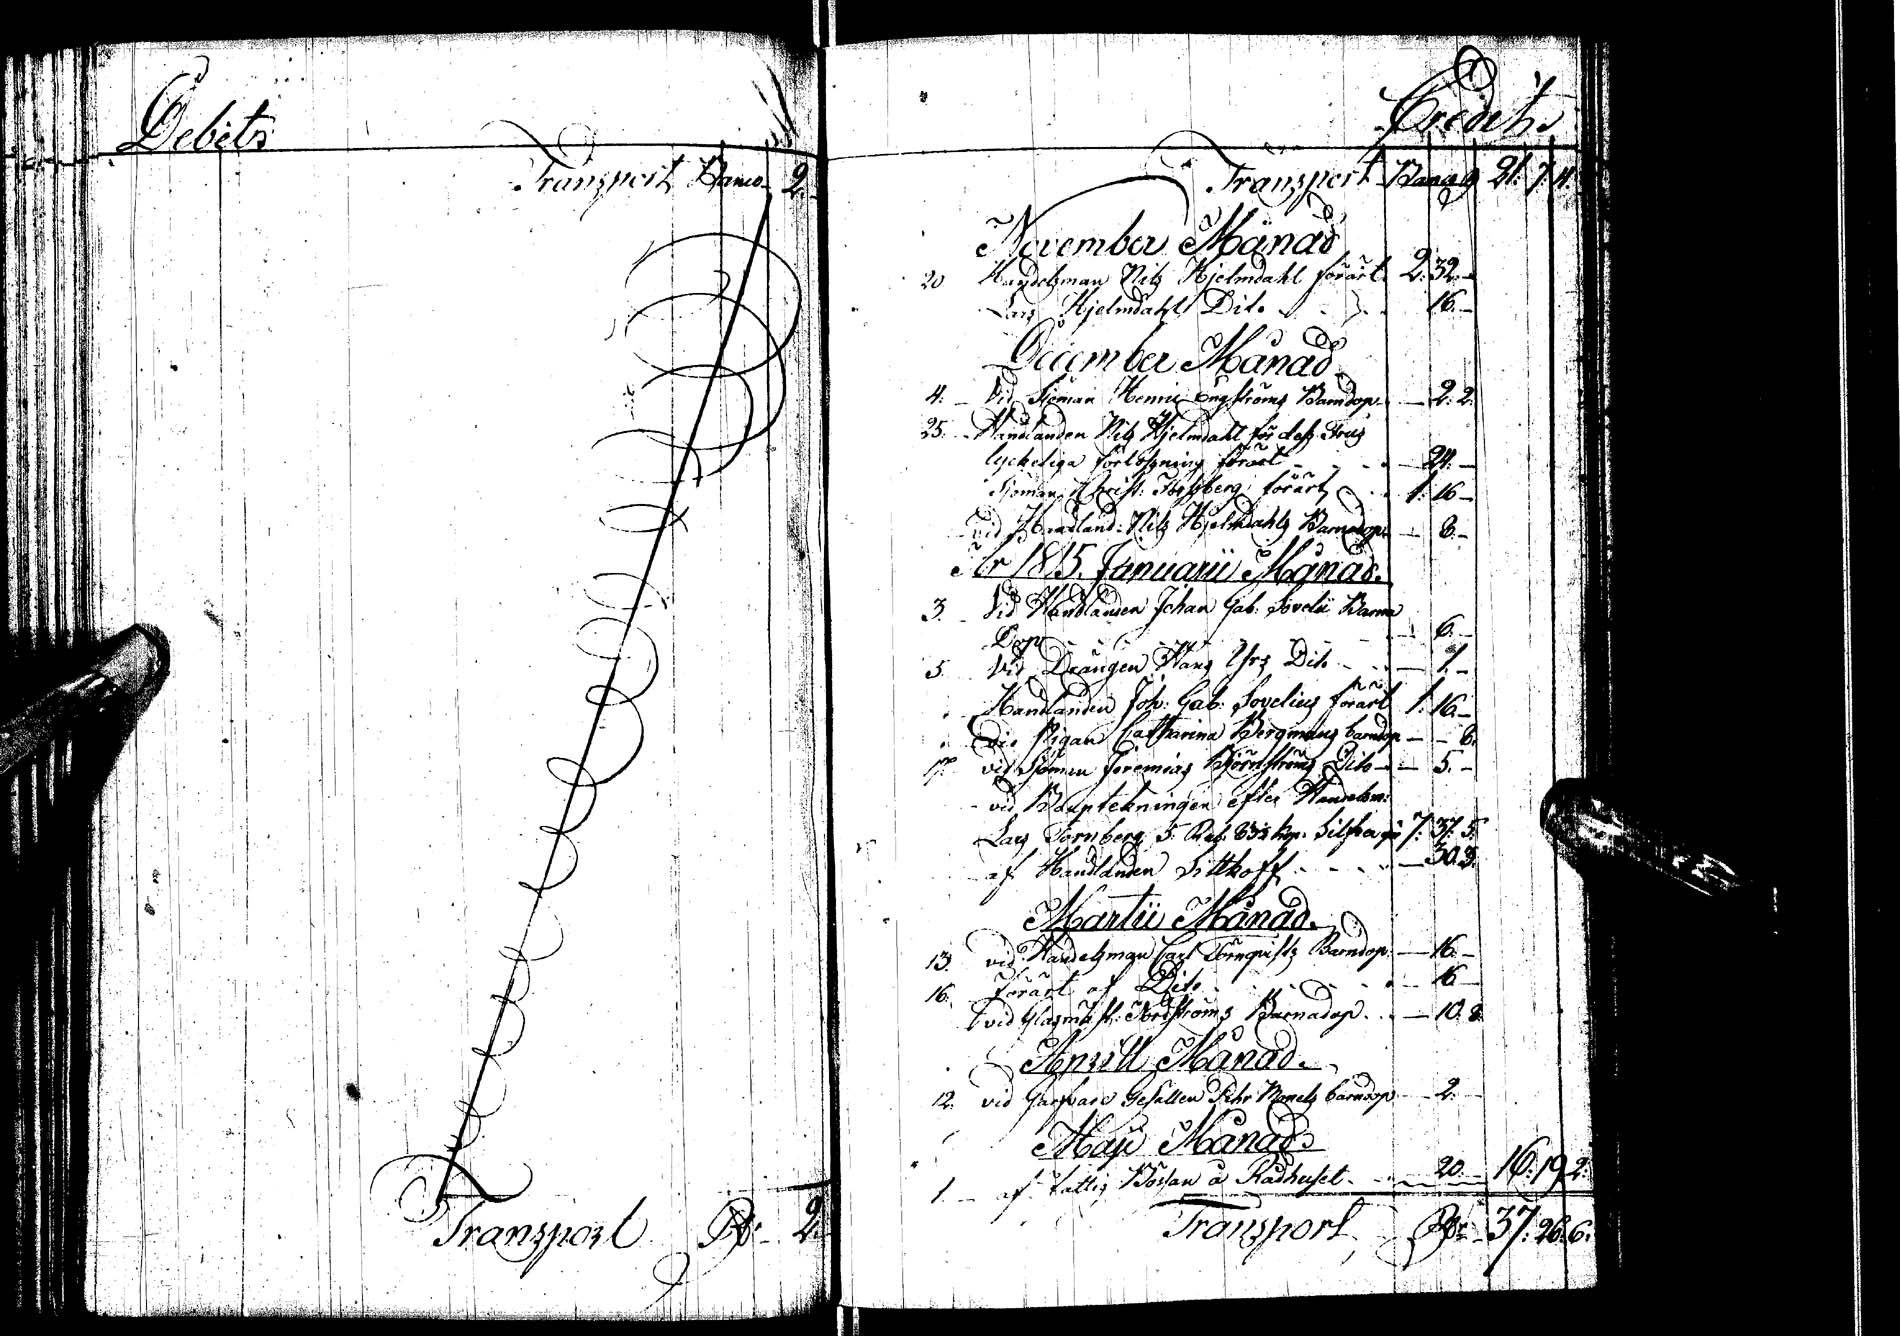 Debet
Transport Banco 2.
Transport Rd: 2.
Credit.
Transport Banco 21: 7: 4.
November Månad
20 Handelsman Nils Hjelmdahl förärt 2: 32. -
Lars Hjelmdahl Dito - - - 16. -
December Månad
4: - Vid Sjöman Henric Engströms Barndop - - 2: 2.
25. - Handlanden Nils Hjelmdahl för dess Frus
lyckeliga förlossning förärt - - - 24. -
Sjöman Christ: förärt 1: 16 -
vid Handland: Nils Hjelmdahls Barndop - 8. -
År 1815. Januarii Månad.
3. - Vid Handlanden Johan Gab: Sovelii Barna
Dop - - - 6. -
5. Vid Drängen Hans Dito - - - 1. -
Handlanden Joh: Gab: Sovelius förärt 1: 16. -
Vid Pigan Catharina Bergmans barndop - - 8.
17. vid Sjöman Jeremias Björnströms Dito - - 5. -
vid Bouptekningen efter Handelsm:
Lars Tornberg 5 Rub: kop: Silfver 7: 37. 5.
af Handlanden - - - 30. 8.
Martii Månad.
13. vid Handelsman Carl Törnqvists Barndop: - 16. -
16. förärt af Dito - - - 16 -
vid Glasmäst: Barnadop. - - 10. 8.
Aprill Månad.
12. vid Garfvare Gesällen Pehr barndop - 2. -
Maji Månad.
1. - af fattig Bössan å Rådhuset - - 20. - 16: 19. 2.
Transport Rd: 37: 26: 6.